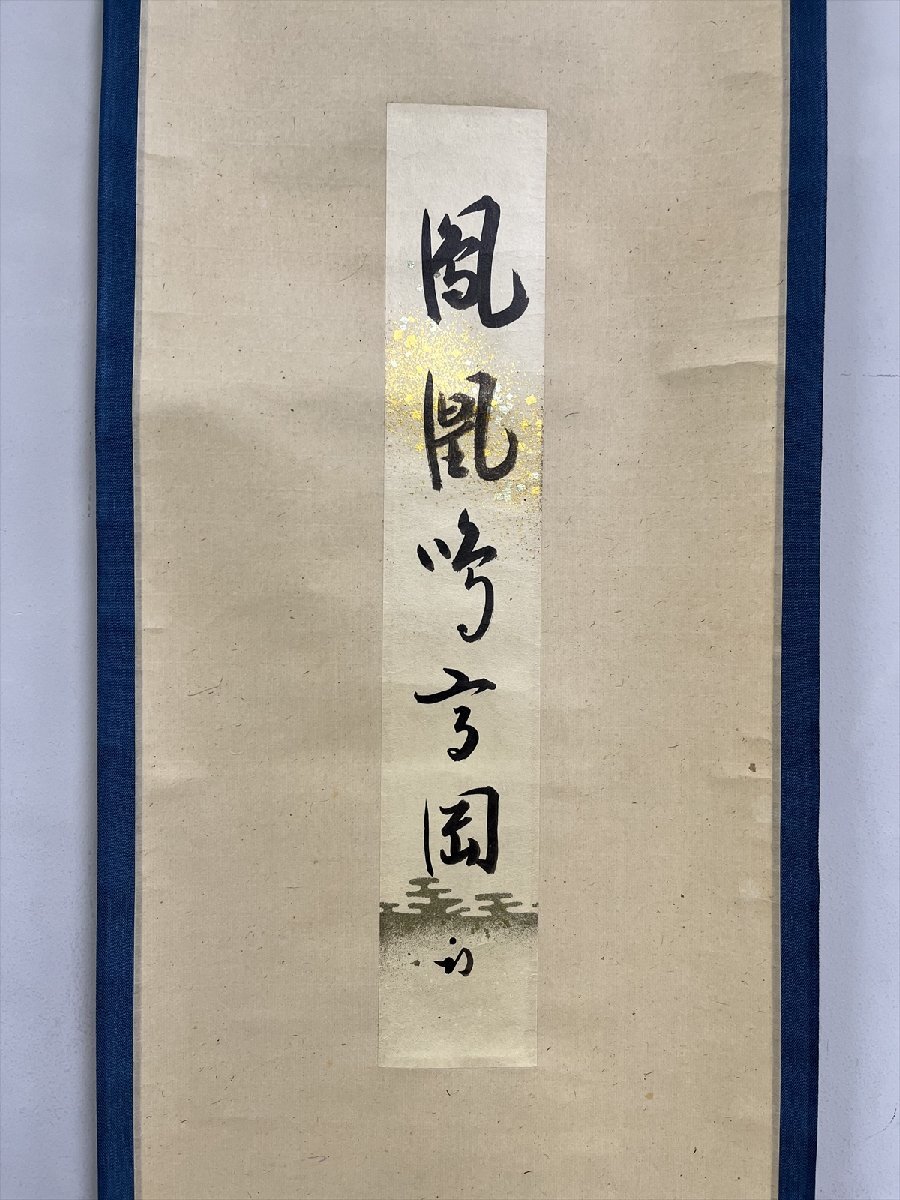 鳳凰鳴高岡